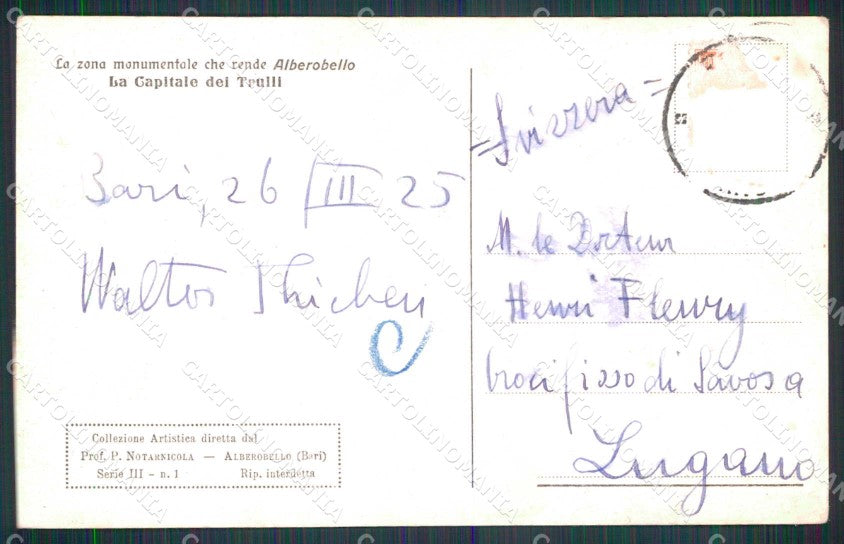 La zona monumentale che rende Alberobello
La Capitale dei Trulli
Bari, 26/III 25
Walter
Collezione Artistica diretta dal
Prof. P. NOTARNICOLA — ALBEROBELLO (Bari)
Serie III - n. 1 Rip. interdetta
= Svizzera =
M. le Docteur
Henri Fleury
Crocifisso di Savosa
Lugano
CARTOLINOMANIA